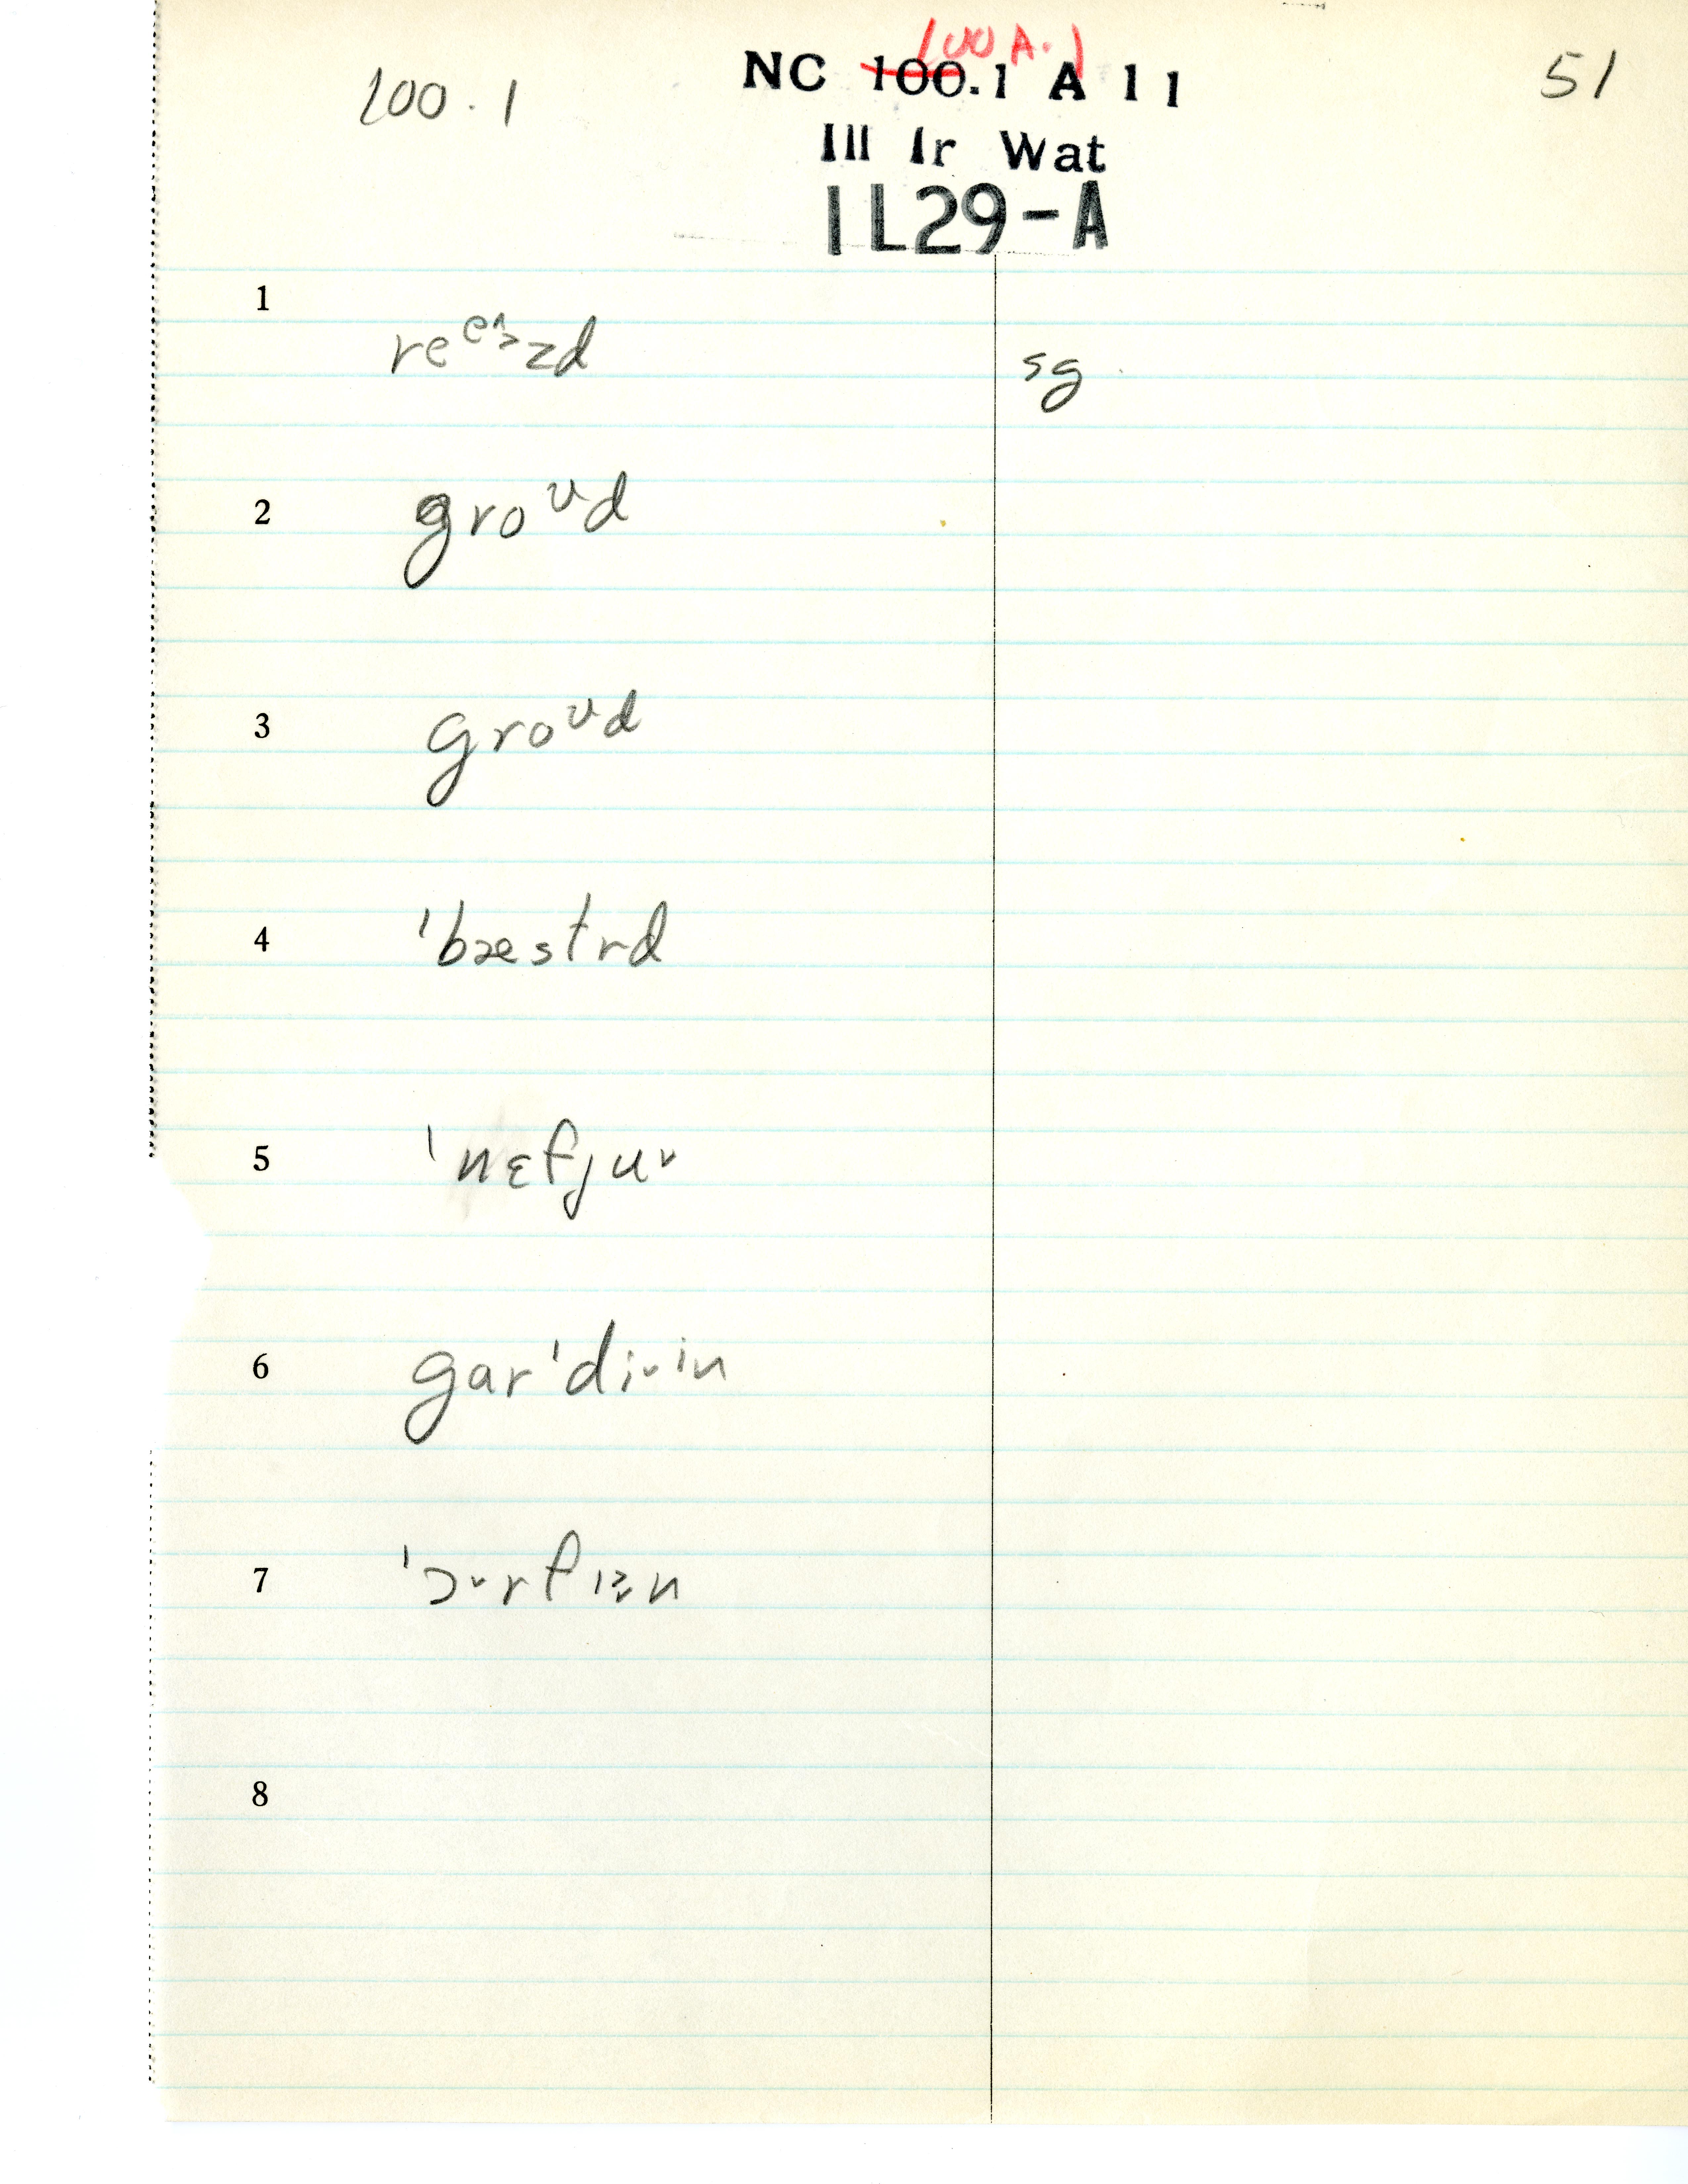 100.1
100A.1
NC 100.1 A 11
51
Ill Ir Wat
1L29-A
1
reᵉ^>zd
sg
2
groᶷd
3
groᶷd
4
ˈbæstrd
5
ˈnɛfju˅
6
garˈdi˅in
7
ˈɔ˅rfɪən
8